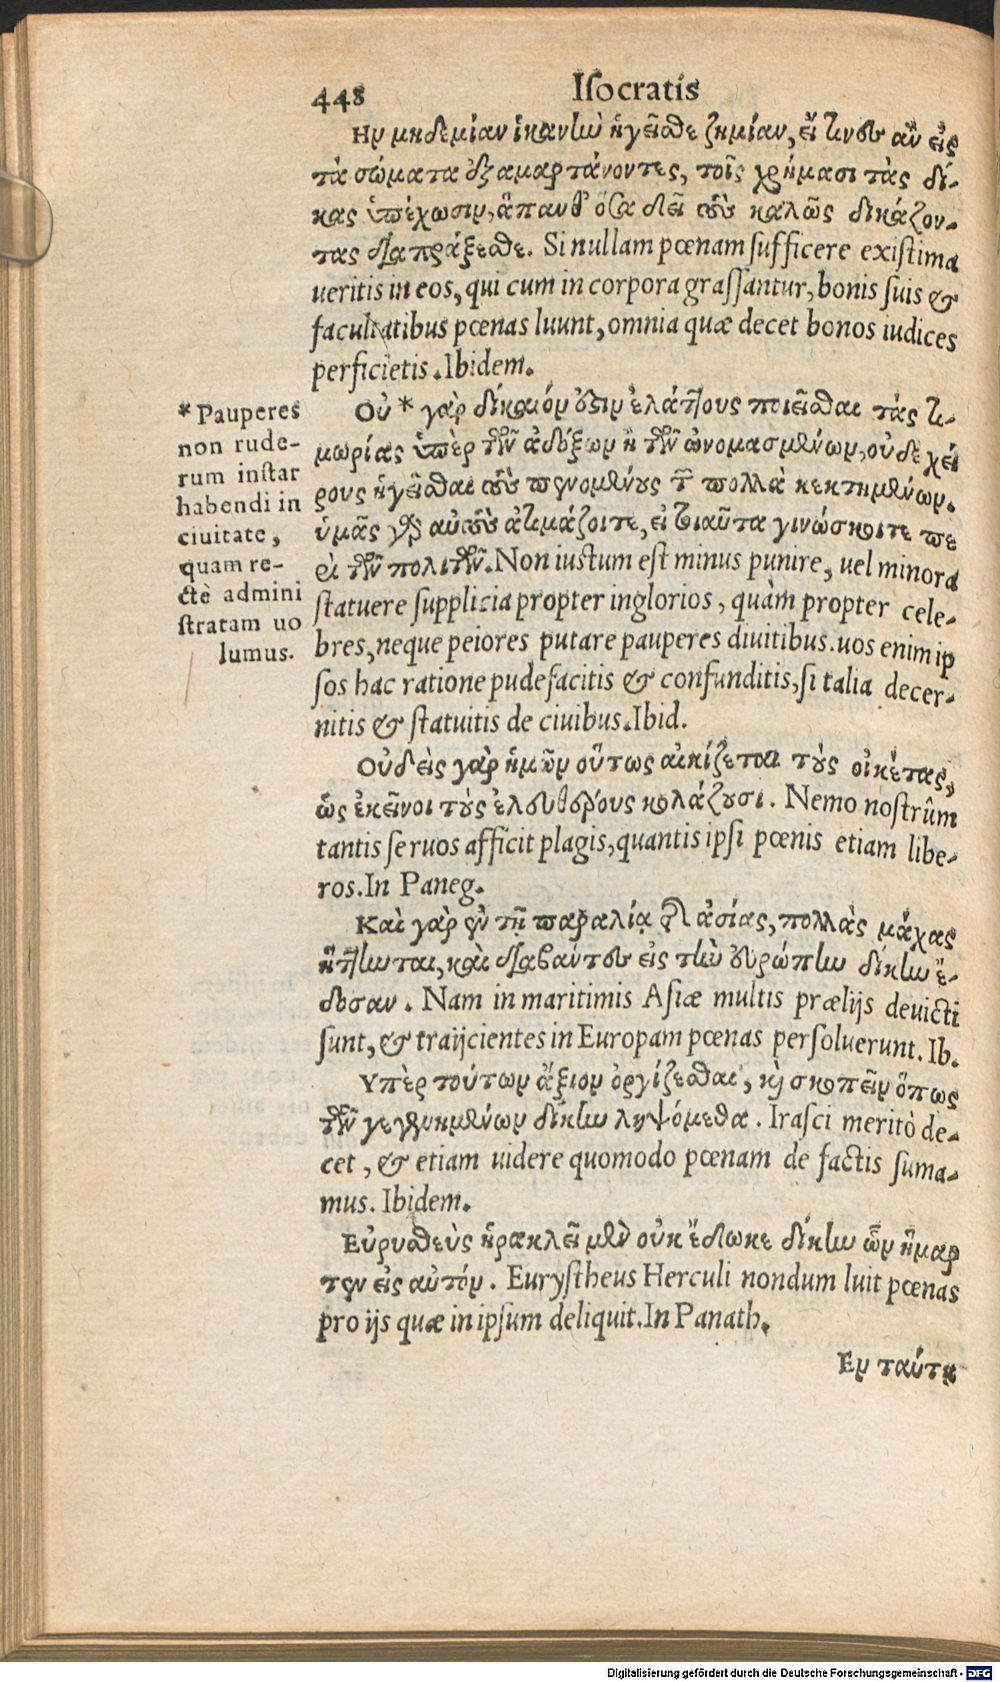 448 Iſocratis
Ην μηδεμίαν ἱκανὴν ἡγεῖσθε ζημίαν, εἴ τινες ἂν εἰς
τὰ σώματα ἐξαμαρτάνοντες, τοῖς χρήμασι τὰς δί-
κας ὑπέχωσιν, ἅπανθ' ὅσα δεῖ τοὺς καλῶς δικάζον-
τας διαπράξεσθε. Si nullam pœnam ſufficere exiſtima
ueritis in eos, qui cum in corpora graſſantur, bonis ſuis &
facultatibus pœnas luunt, omnia quæ decet bonos iudices
perficietis. Ibidem.
* Pauperes
non rude-
rum inſtar
habendi in
ciuitate,
quam re-
ctè admini
ſtratam uo
lumus.
Οὐ * γὰρ δίκαιόν ἐστιν ἐλάττους ποιεῖσθαι τὰς τι-
μωρίας ὑπὲρ τῶν ἀδόξων ἢ τῶν ὠνομασμένων, οὐδε χεί
ρους ἡγεῖσθαι τοὺς πενομένους τῶν πολλὰ κεκτημένων.
ὑμᾶς γὰρ αὐτοὺς ἀτιμάζοιτε, εἰ τοιαῦτα γινώσκοιτε πε
ρὶ τῶν πολιτῶν. Non iustum eſt minus punire, uel minora
ſtatuere ſupplicia propter inglorios, quàm propter cele-
bres, neque peiores putare pauperes diuitibus. uos enim ip
ſos hac ratione pudefacitis & confunditis, ſi talia decer-
nitis & ſtatuitis de ciuibus. Ibid.
Οὐδεὶς γὰρ ἡμῶν οὕτως αἰκίζεται τοὺς οἰκέτας,
ὡς ἐκεῖνοι τοὺς ἐλευθέρους κολάζουσι. Nemo noſtrûm
tantis ſeruos afficit plagis, quantis ipſi pœnis etiam libe-
ros. In Paneg.
Καὶ γὰρ ἐν τῇ παραλίᾳ τῆς ἀσίας, πολλὰς μάχας
ἥττηνται, καὶ διαβάντες εἰς τὴν εὐρώπην δίκην ἔ-
δοσαν. Nam in maritimis Aſiæ multis prælijs deuicti
ſunt, & traijcientes in Europam pœnas perſoluerunt. Ib.
Υπὲρ τούτων ἄξιον ὀργίζεσθαι, καὶ σκοπεῖν ὅπως
τῶν γεγενημένων δίκην ληψόμεθα. Iraſci meritò de-
cet, & etiam uidere quomodo pœnam de factis ſuma-
mus. Ibidem.
Εὐρυσθεὺς ἡρακλεῖ μὲν οὐκ ἔδωκε δίκην ὧν ἥμαρ
τεν εἰς αὐτόν. Euryſtheus Herculi nondum luit pœnas
pro ijs quæ in ipſum deliquit. In Panath.
Εν ταύτῃ
Digitalisierung gefördert durch die Deutsche Forschungsgemeinschaft - DFG